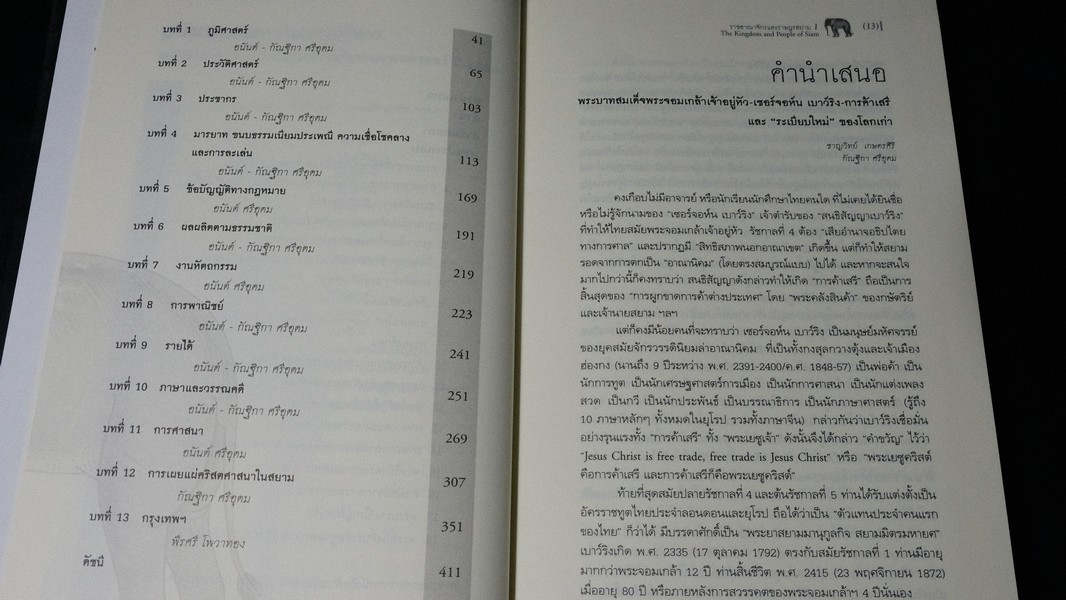 บทที่ 1 ภูมิศาสตร์ 41
อนันต์ - กัณฐิกา ศรีอุดม
บทที่ 2 ประวัติศาสตร์ 65
อนันต์ - กัณฐิกา ศรีอุดม
บทที่ 3 ประชากร 103
อนันต์ - กัณฐิกา ศรีอุดม
บทที่ 4 มารยาท ขนบธรรมเนียมประเพณี ความเชื่อโชคลาง
และการละเล่น 113
อนันต์ - กัณฐิกา ศรีอุดม
บทที่ 5 ข้อบัญญัติทางกฎหมาย 169
อนันต์ ศรีอุดม
บทที่ 6 ผลผลิตตามธรรมชาติ 191
อนันต์ - กัณฐิกา ศรีอุดม
บทที่ 7 งานหัตถกรรม 219
อนันต์ ศรีอุดม
บทที่ 8 การพาณิชย์ 223
อนันต์ - กัณฐิกา ศรีอุดม
บทที่ 9 รายได้ 241
อนันต์ - กัณฐิกา ศรีอุดม
บทที่ 10 ภาษาและวรรณคดี 251
อนันต์ - กัณฐิกา ศรีอุดม
บทที่ 11 การศาสนา 269
อนันต์ ศรีอุดม
บทที่ 12 การเผยแผ่คริสตศาสนาในสยาม 307
กัณฐิกา ศรีอุดม
บทที่ 13 กรุงเทพฯ 351
พีรศรี โพวาทอง
ดัชนี 411
ราชอาณาจักรและราษฎรสยาม 1
The Kingdom and People of Siam (13)
คำนำเสนอ
พระบาทสมเด็จพระจอมเกล้าเจ้าอยู่หัว-เซอร์จอห์น เบาว์ริง-การค้าเสรี
และ “ระเบียบใหม่” ของโลกเก่า
ชาญวิทย์ เกษตรศิริ
กัณฐิกา ศรีอุดม
คงเกือบไม่มีอาจารย์ หรือนักเรียนนักศึกษาไทยคนใด ที่ไม่เคยได้ยินชื่อ
หรือไม่รู้จักนามของ “เซอร์จอห์น เบาว์ริง” เจ้าตำรับของ “สนธิสัญญาเบาว์ริง”
ที่ทำให้ไทยสมัยพระจอมเกล้าเจ้าอยู่หัว รัชกาลที่ 4 ต้อง “เสียอำนาจอธิปไตย
ทางการศาล” และปรากฏมี “สิทธิสภาพนอกอาณาเขต” เกิดขึ้น แต่ก็ทำให้สยาม
รอดจากการตกเป็น “อาณานิคม” (โดยตรงสมบูรณ์แบบ) ไปได้ และหากจะสนใจ
มากไปกว่านี้ก็คงทราบว่า สนธิสัญญาดังกล่าวทำให้เกิด “การค้าเสรี” ถือเป็นการ
สิ้นสุดของ “การผูกขาดการค้าต่างประเทศ” โดย “พระคลังสินค้า” ของกษัตริย์
และเจ้านายสยาม ฯลฯ
แต่ก็คงมีน้อยคนที่จะทราบว่า เซอร์จอห์น เบาว์ริง เป็นมนุษย์มหัศจรรย์
ของยุคสมัยจักรวรรดินิยมล่าอาณานิคม ที่เป็นทั้งกงสุลกวางตุ้งและเจ้าเมือง
ฮ่องกง (นานถึง 9 ปีระหว่าง พ.ศ. 2391-2400/ค.ศ. 1848-57) เป็นพ่อค้า เป็น
นักการทูต เป็นนักเศรษฐศาสตร์การเมือง เป็นนักการศาสนา เป็นนักแต่งเพลง
สวด เป็นกวี เป็นนักประพันธ์ เป็นบรรณาธิการ เป็นนักภาษาศาสตร์ (รู้ถึง
10 ภาษาหลักๆ ทั้งหมดในยุโรป รวมทั้งภาษาจีน) กล่าวกันว่าเบาว์ริงเชื่อมั่น
อย่างรุนแรงทั้ง “การค้าเสรี” ทั้ง “พระเยซูเจ้า” ดังนั้นจึงได้กล่าว “คำขวัญ” ไว้ว่า
“Jesus Christ is free trade, free trade is Jesus Christ” หรือ “พระเยซูคริสต์
คือการค้าเสรี และการค้าเสรีก็คือพระเยซูคริสต์”
ท้ายที่สุดสมัยปลายรัชกาลที่ 4 และต้นรัชกาลที่ 5 ท่านได้รับแต่งตั้งเป็น
อัครราชทูตไทยประจำลอนดอนและยุโรป ถือได้ว่าเป็น “ตัวแทนประจำคนแรก
ของไทย” ก็ว่าได้ มีบรรดาศักดิ์เป็น “พระยาสยามมานุกูลกิจ สยามมิตรมหายศ”
เบาว์ริงเกิด พ.ศ. 2335 (17 ตุลาคม 1792) ตรงกับสมัยรัชกาลที่ 1 ท่านมีอายุ
มากกว่าพระจอมเกล้า 12 ปี ท่านสิ้นชีวิต พ.ศ. 2415 (23 พฤศจิกายน 1872)
เมื่ออายุ 80 ปี หรือภายหลังการสวรรคตของพระจอมเกล้าฯ 4 ปีนั่นเอง